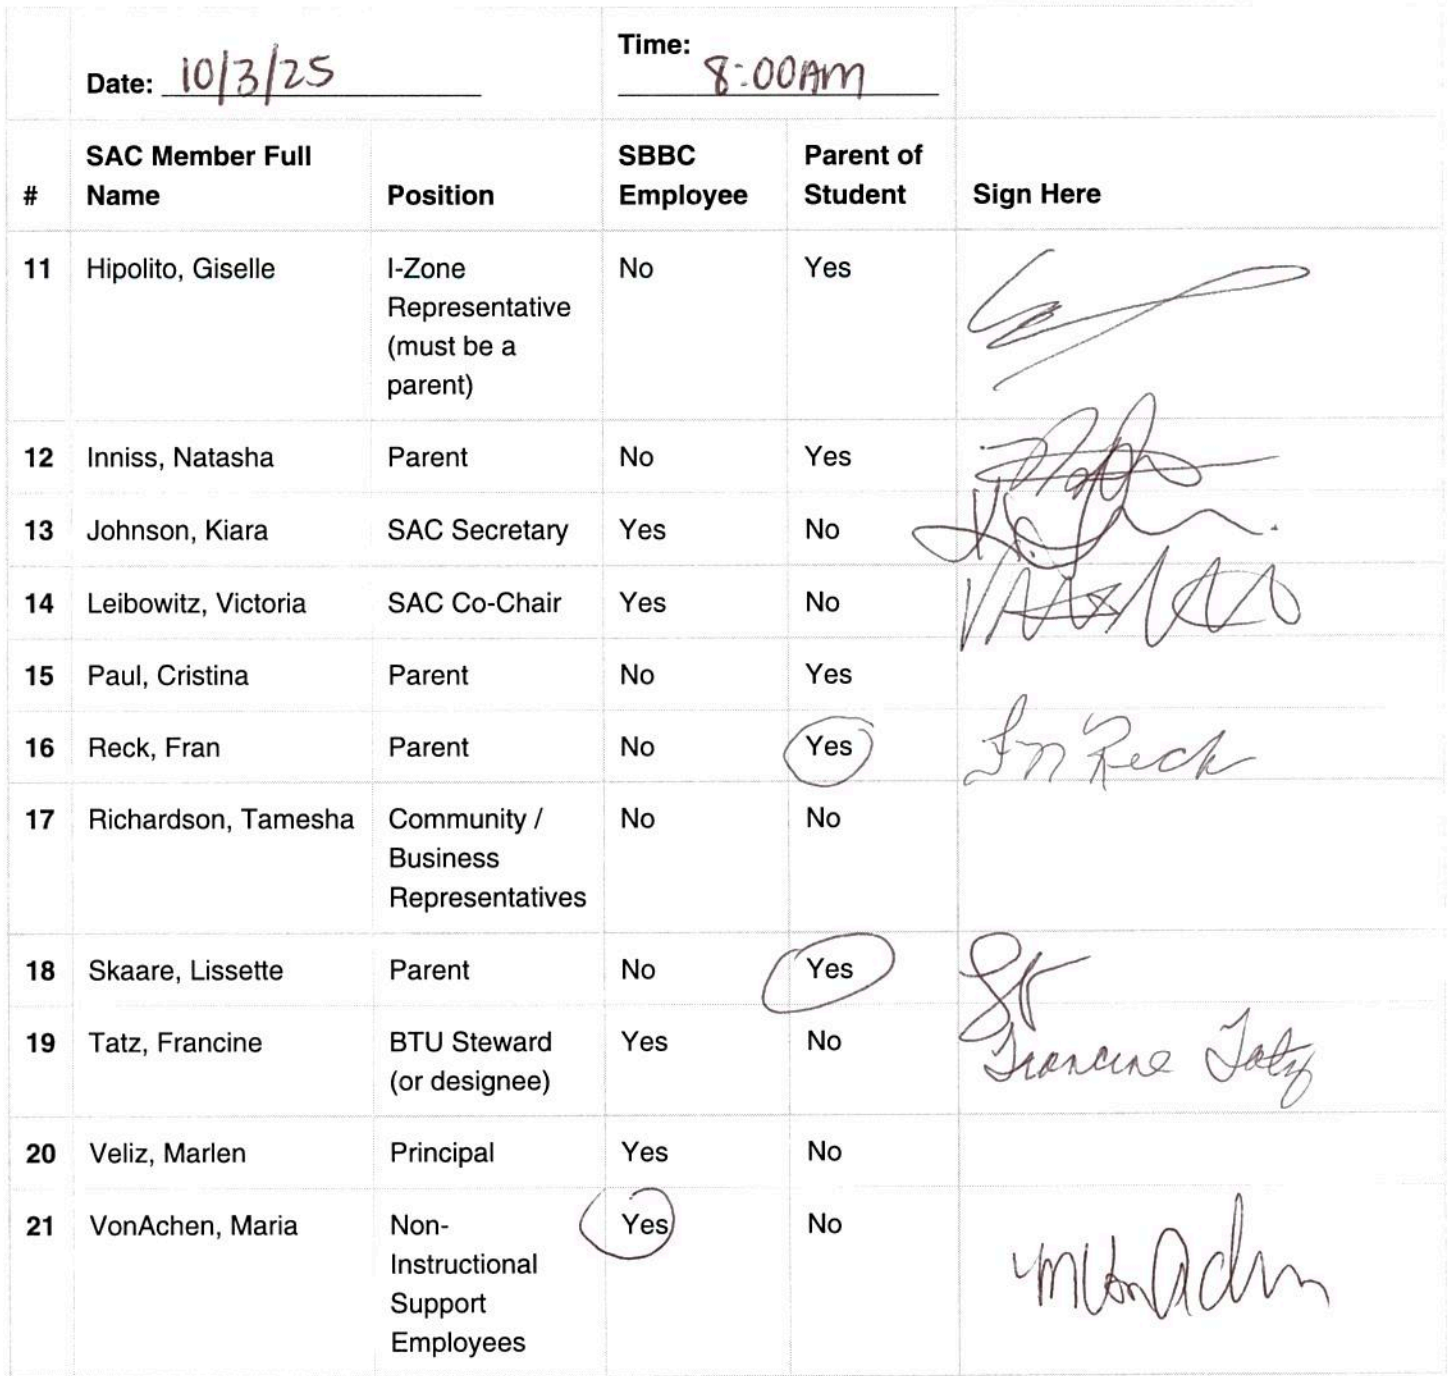 Date: 10/3/25 Time: 8:00AM
# SAC Member Full Name Position SBBC Employee Parent of Student Sign Here
11 Hipolito, Giselle I-Zone No Yes
Representative
(must be a
parent)
12 Inniss, Natasha Parent No Yes
13 Johnson, Kiara SAC Secretary Yes No
14 Leibowitz, Victoria SAC Co-Chair Yes No
15 Paul, Cristina Parent No Yes
16 Reck, Fran Parent No Yes Fn Reck
17 Richardson, Tamesha Community / No No
Business
Representatives
18 Skaare, Lissette Parent No Yes
19 Tatz, Francine BTU Steward Yes No Francine Tatz
(or designee)
20 Veliz, Marlen Principal Yes No
21 VonAchen, Maria Non- Yes No
Instructional
Support
Employees